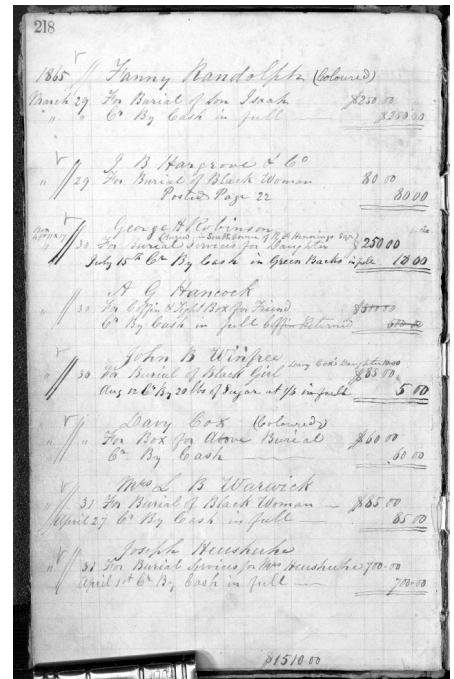 218
1865 Fanny Randolph (Coloured)
March 29 For Burial of Son Isaah $250.00
" " Cr By Cash in full $250.00
J B Hargrove & Co
" 29 For Burial of Black Woman 80.00
Posted Page 22 80.00
George A Robinson
30 For Burial Services for Daughter $250.00
July 15th Cr By Cash in Green Backs in full 18.00
A G Hancock
" 30 For Coffin & Box for Friend
Cr By Cash in full Coffin Returned
John B Winfree
" 30 For Burial of Black Girl $85.00
Aug 12 Cr By 20 lbs of Sugar at 1/6 in full 5.00
Davy Cox (Coloured)
" " For Box for Above Burial $60.00
Cr By Cash 60.00
Mrs L B Warwick
" 31 For Burial of Black Woman $85.00
April 27 Cr By Cash in full 85.00
Joseph
" 31 For Burial Services for Mrs 700.00
April 1st Cr By Cash in full 700.00
$1510.00